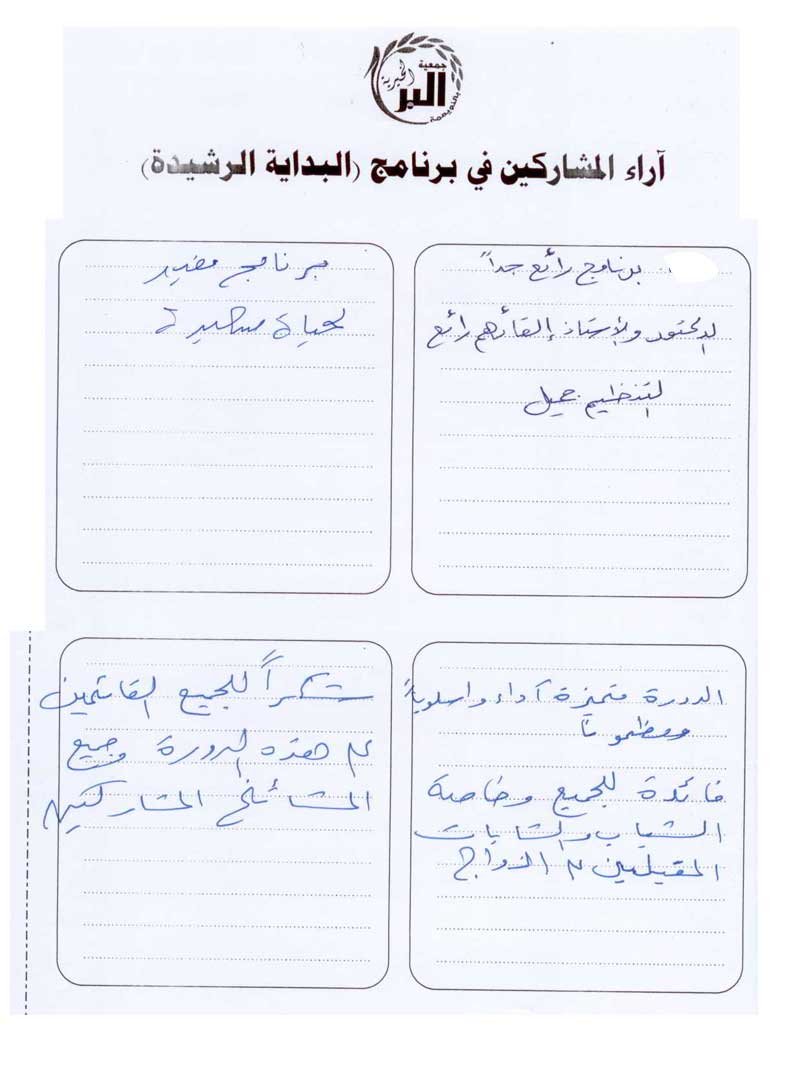 جمعية
البر الخيرية
آراء المشاركين في برنامج (البداية الرشيدة)
برنامج رائع جداً
الدكتور والأستاذ إلقائهم رائع
التنظيم جميل
برنامج مفيد
لحياة سعيدة
الدورة متميزة آداء واسلوباً
ومضموناً
فائدة للجميع وخاصة
الشباب والشابات
المقبلين على الزواج
شكراً للجميع القائمين
على هذه الدورة وجميع
المشائخ المشاركين